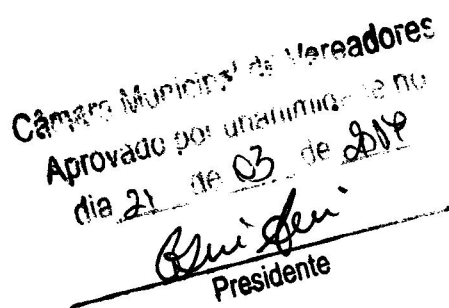 Câmara Municipal de Vereadores
Aprovado por unanimidade no
dia 21 de 03 de
Presidente